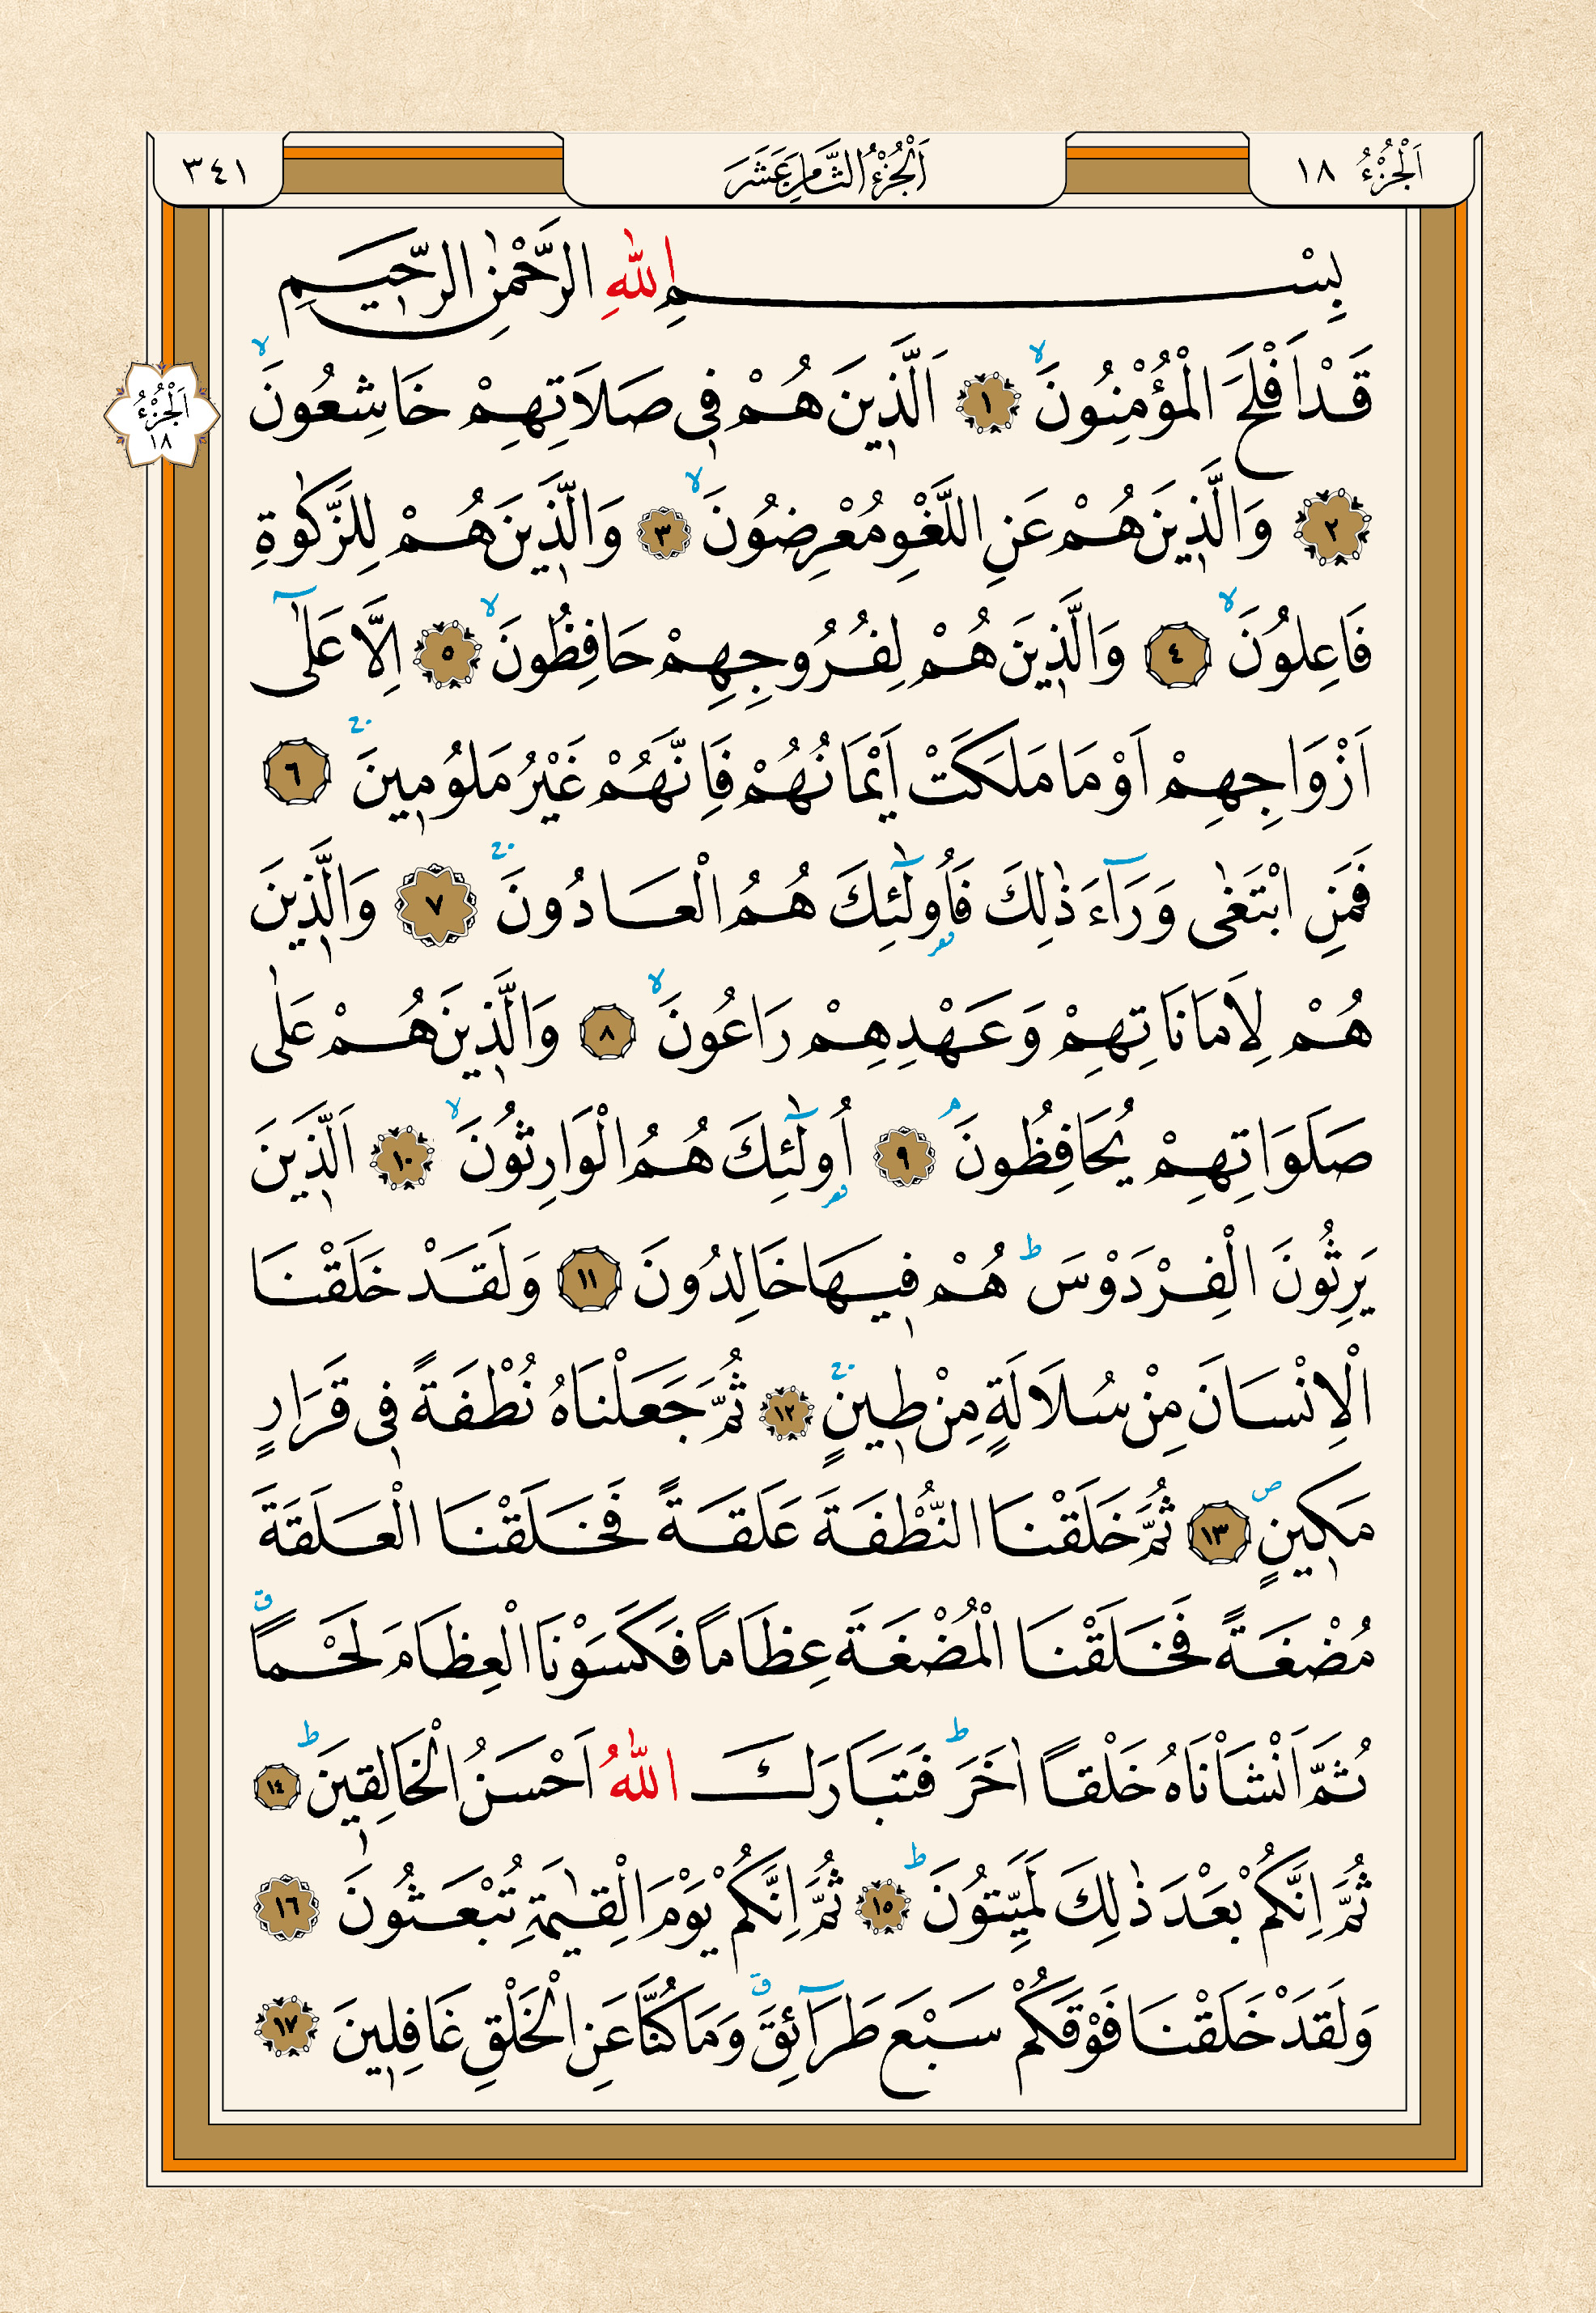 اَلْجُزْءُ ١٨
اَلْجُزْءُ الثَّامِنَ عَشَرَ
٣٤١
بِسْمِ اللّٰهِ الرَّحْمٰنِ الرَّحٖيمِ
قَدْ اَفْلَحَ الْمُؤْمِنُونَۙ ١ اَلَّذٖينَ هُمْ فٖي صَلَاتِهِمْ خَاشِعُونَۙ
اَلْجُزْءُ
١٨
٢ وَالَّذٖينَ هُمْ عَنِ اللَّغْوِ مُعْرِضُونَۙ ٣ وَالَّذٖينَ هُمْ لِلزَّكٰوةِ
فَاعِلُونَۙ ٤ وَالَّذٖينَ هُمْ لِفُرُوجِهِمْ حَافِظُونَۙ ٥ اِلَّا عَلٰٓى
اَزْوَاجِهِمْ اَوْ مَا مَلَكَتْ اَيْمَانُهُمْ فَاِنَّهُمْ غَيْرُ مَلُومٖينَۚ ٦
فَمَنِ ابْتَغٰى وَرَٓاءَ ذٰلِكَ فَاُو۬لٰٓئِكَ هُمُ الْعَادُونَۚ ٧ وَالَّذٖينَ
هُمْ لِاَمَانَاتِهِمْ وَعَهْدِهِمْ رَاعُونَۙ ٨ وَالَّذٖينَ هُمْ عَلٰى
صَلَوَاتِهِمْ يُحَافِظُونَۢ ٩ اُو۬لٰٓئِكَ هُمُ الْوَارِثُونَۙ ١٠ اَلَّذٖينَ
يَرِثُونَ الْفِرْدَوْسَؕ هُمْ فٖيهَا خَالِدُونَ ١١ وَلَقَدْ خَلَقْنَا
الْاِنْسَانَ مِنْ سُلَالَةٍ مِنْ طٖينٍۚ ١٢ ثُمَّ جَعَلْنَاهُ نُطْفَةً فٖي قَرَارٍ
مَكٖينٍࣕ ١٣ ثُمَّ خَلَقْنَا النُّطْفَةَ عَلَقَةً فَخَلَقْنَا الْعَلَقَةَ
مُضْغَةً فَخَلَقْنَا الْمُضْغَةَ عِظَامًا فَكَسَوْنَا الْعِظَامَ لَحْمًاࣗ
ثُمَّ اَنْشَاْنَاهُ خَلْقًا اٰخَرَؕ فَتَبَارَكَ اللّٰهُ اَحْسَنُ الْخَالِقٖينَؕ ١٤
ثُمَّ اِنَّكُمْ بَعْدَ ذٰلِكَ لَمَيِّتُونَؕ ١٥ ثُمَّ اِنَّكُمْ يَوْمَ الْقِيٰمَةِ تُبْعَثُونَ ١٦
وَلَقَدْ خَلَقْنَا فَوْقَكُمْ سَبْعَ طَرَٓائِقَࣗ وَمَا كُنَّا عَنِ الْخَلْقِ غَافِلٖينَ ١٧